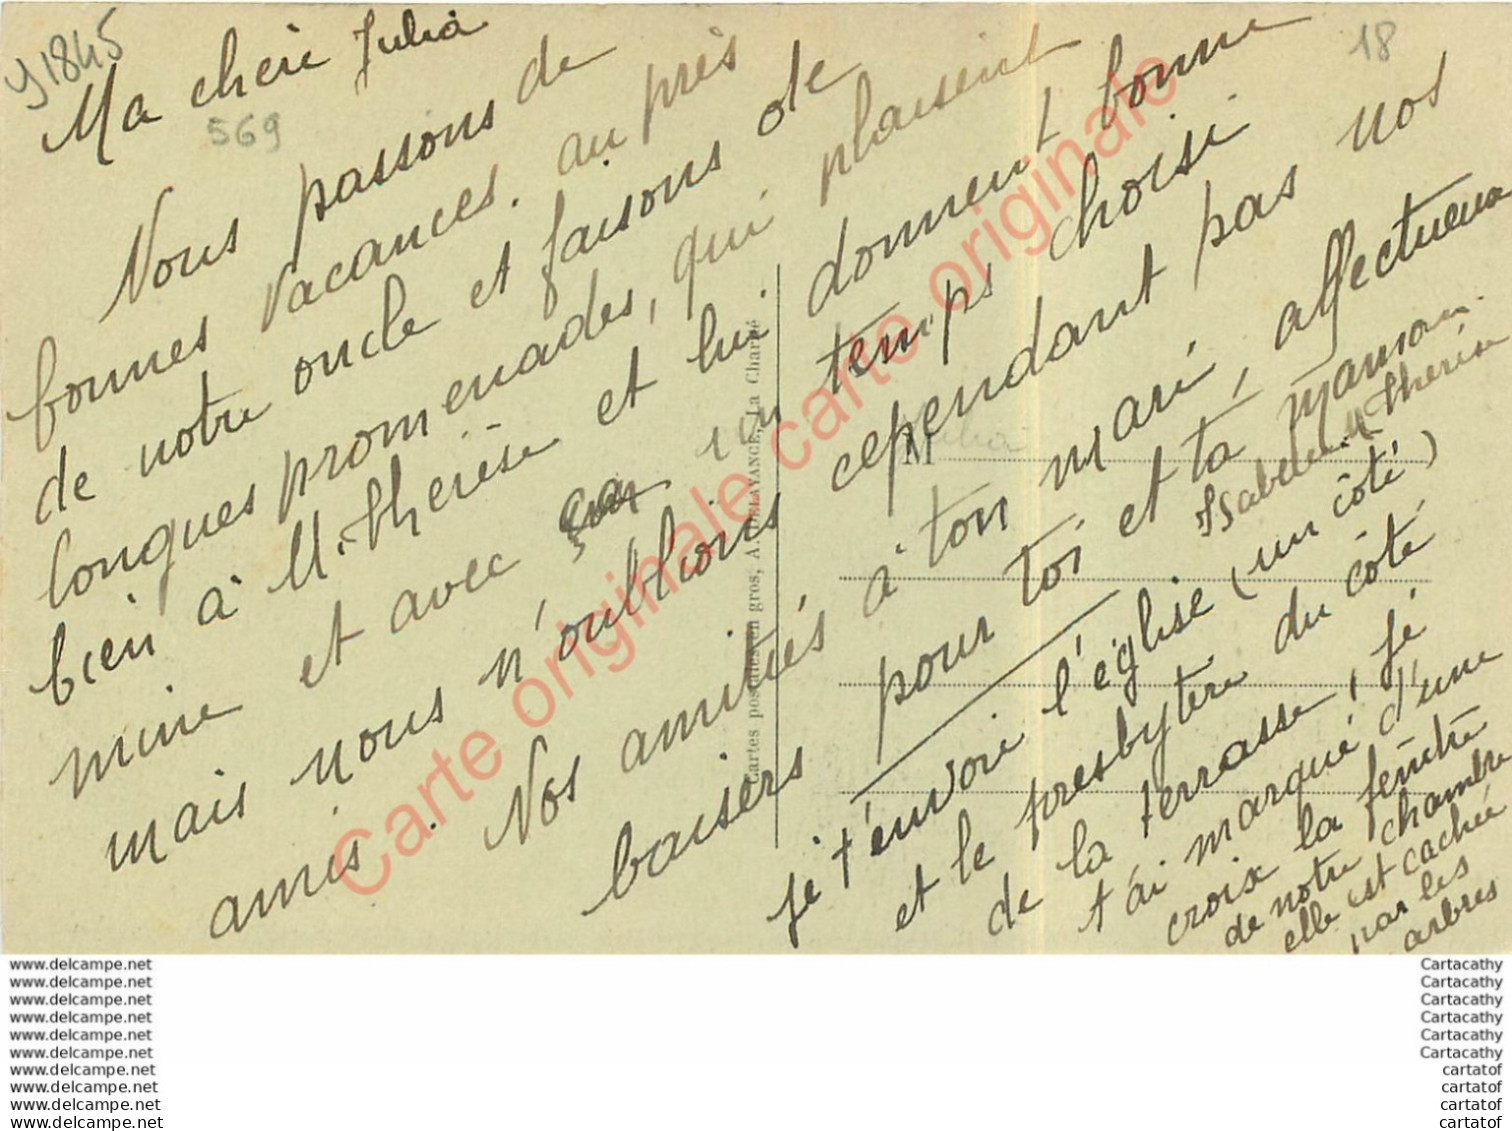 y1845
18
569
Ma cherie Julia
Nous passons de
bonnes vacances. au près
de notre oncle et faisons de
longues promenades, qui plaisent
bien à M. Thérèse et lui donnent bonne
mine et avec un temps choisi
mais nous n'oublions cependant pas nos
amis. Nos amitiés à ton mari, affectueux
baisers pour toi et ta maman.
Isabelle M Thérèse
je t'envoie l'église (un côté)
et le presbytère du côté
de la terrasse, je
t'ai marqué d'une
croix la fenêtre
de notre chambre
elle est cachée
par les
arbres
Cartes postales en gros, A. DELAYANCE, La Charité
M
Julia
Carte originale carte originale
www.delcampe.net
www.delcampe.net
www.delcampe.net
www.delcampe.net
www.delcampe.net
www.delcampe.net
www.delcampe.net
www.delcampe.net
www.delcampe.net
www.delcampe.net
Cartacathy
Cartacathy
Cartacathy
Cartacathy
Cartacathy
Cartacathy
cartatof
cartatof
cartatof
cartatof